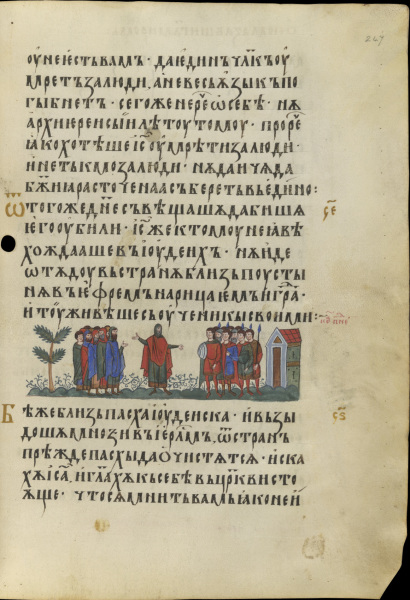 оунеѥстьвамъ · даѥдинъчл҃къоу
мретъзалюди · аневесьѧзыкъпо
гыбнетъ · сегоженереⷱ҇ѡсебѣ · нѫ
архиереисыилѣтоутомоу · прореⷱ҇
ꙗкохотѣшеіс҃оумрѣтизалюди ·
инетъкмозалюди · нѫдаичѧда
бж҃иарасточенаасъберетьвьедино :
ѿтогожедн҃есъвѣщашѧдабишѧ с҃е
ѥгооубили · іс҃жектомоунеꙗвѣ
хождаашевъіоудеихъ · нѫиде
ѿтѫдоувъстранѫблизьпоусты
нѧвъіефремънарицаѥмъигра҃ ·
итоуживѣшесъоученикысвоими :
Бѣжеблизьпасхаіоудеиска · ивъзы с҃ѕ
дошѧмноѕивъіерл҃мъ · ѿстранъ
прѣждепасхыдаочистѧтсѧ · иска
хѫіс҃а · игл҃ахѫкъсебѣвъцр҃квисто
ѧще · чтосѧмнитьвамъꙗконеи